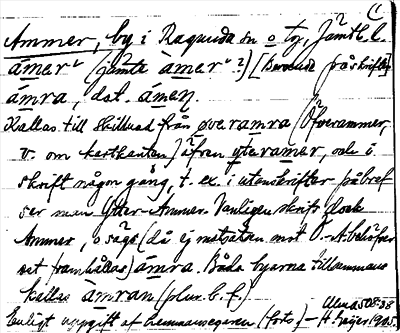 C
Ammer, by i Ragunda sn o tg, Jämtl. l.
āmer (jämte āmer ?) [Beroende på skriften]
āmra, dat. āmen.
Kallas till skillnad från øveramra (Öfverammer,
v. om kartkanten) äfven yteramer, och i
skrift någon gång, t. ex. i utanskrifter på bref
ser man Ytter-Ammer. Vanligen skrifs dock
Ammer, o säges (då ej motsatsen mot Ö.-A. behöfver
framhållas) āmra. Båda byarna tillsammans
kallas āmran (plur. b. f.).
Enligt uppgift af hemmansegaren (foto) – H. Geijer 1905.